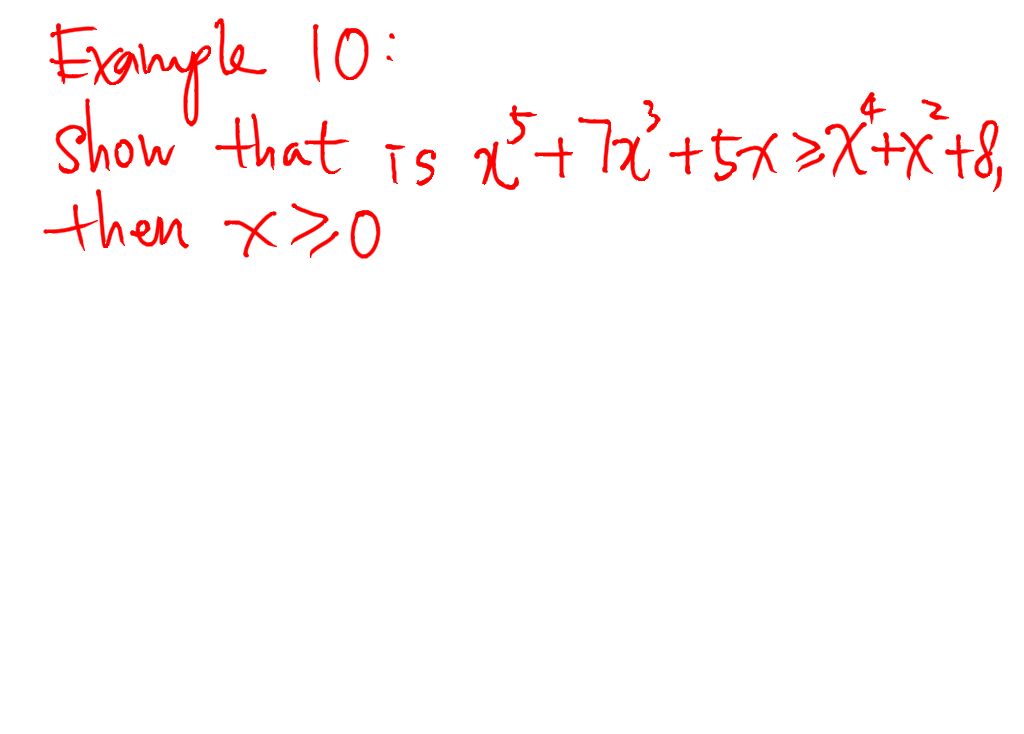 Example 10:
show that is x⁵+7x³+5x≥x⁴+x²+8,
then x≥0